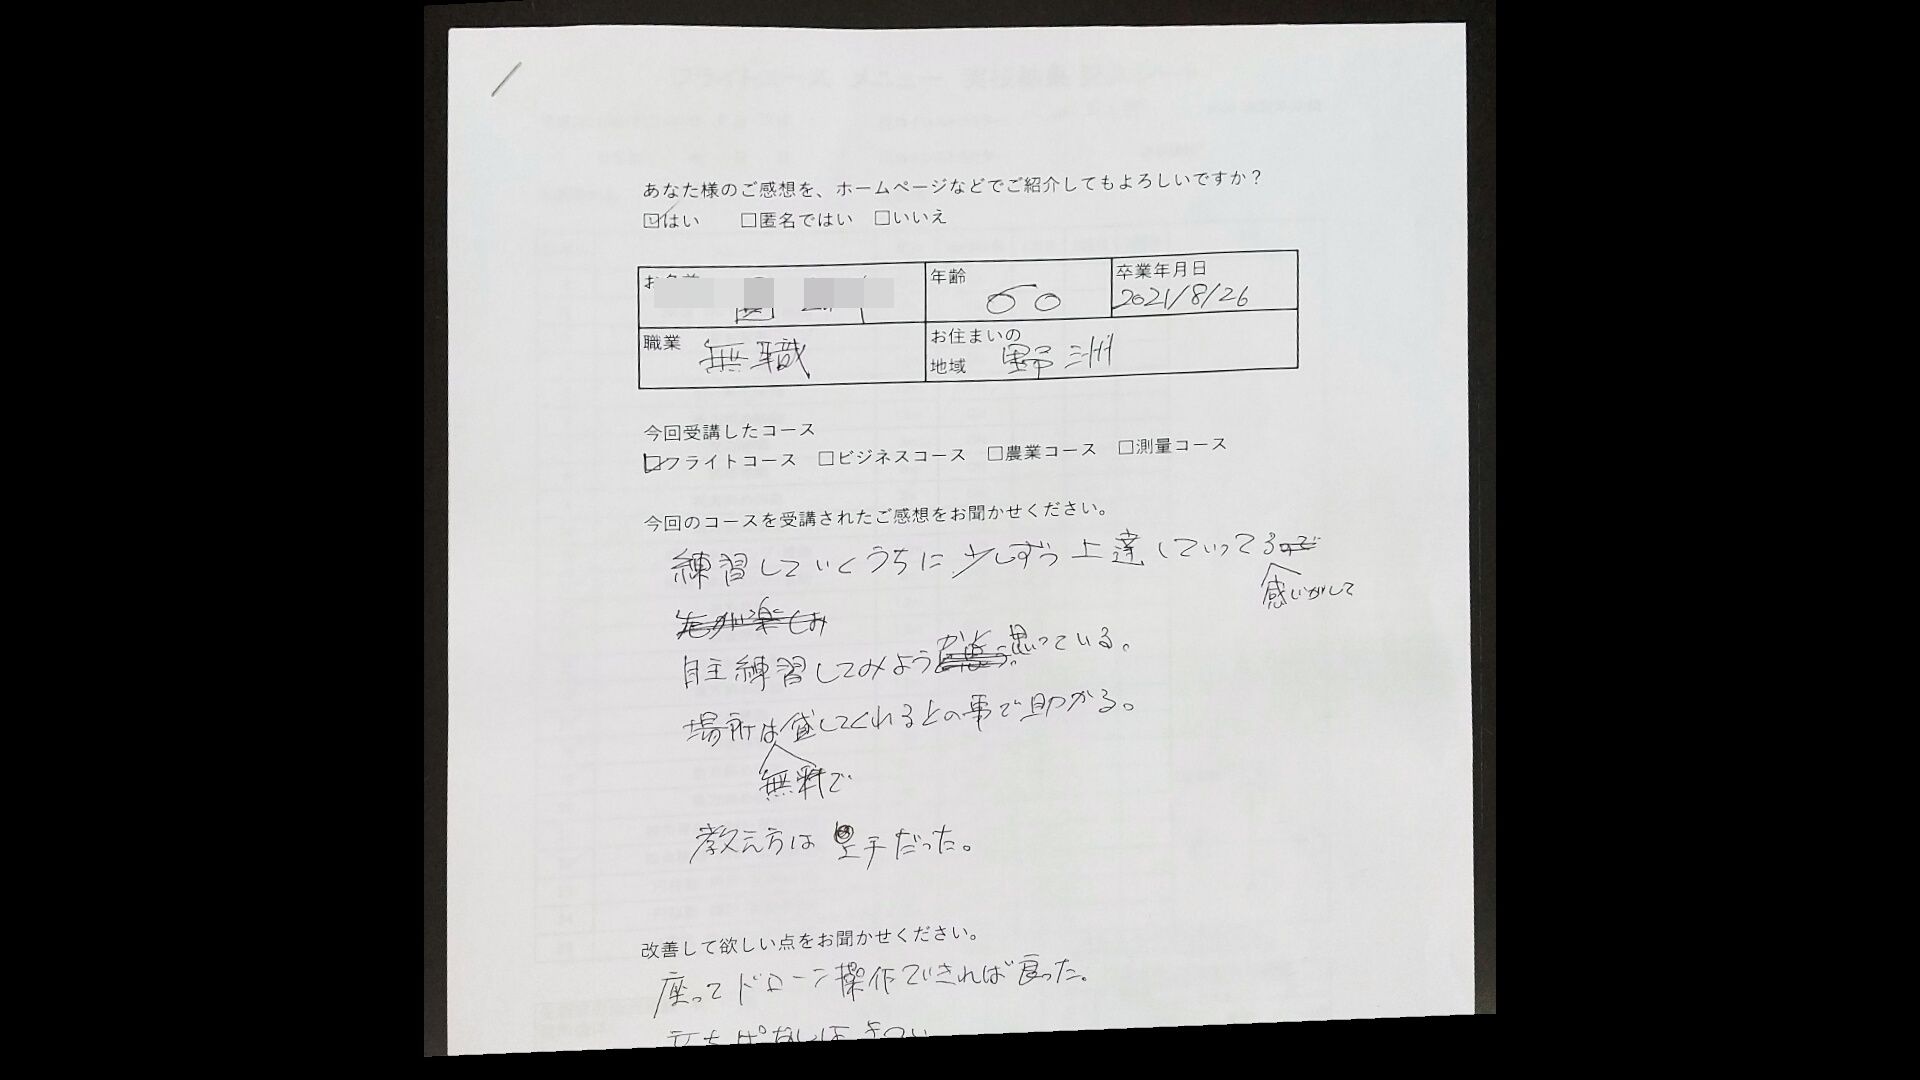 あなた様のご感想を、ホームページなどでご紹介してもよろしいですか?
☑はい □匿名ではい □いいえ
年齢 60
卒業年月日 2021/8/26
職業 無職
お住まいの地域 野洲
今回受講したコース
☑フライトコース □ビジネスコース □農業コース □測量コース
今回のコースを受講されたご感想をお聞かせください。
練習していくうちに少しずつ上達していってる
感じがして
自主練習してみようかと思っている。
場所は貸してくれるとの事で助かる。
無料で
教え方は上手だった。
改善して欲しい点をお聞かせください。
座ってドローン操作できれば良った。
立ちぱなしはきつい